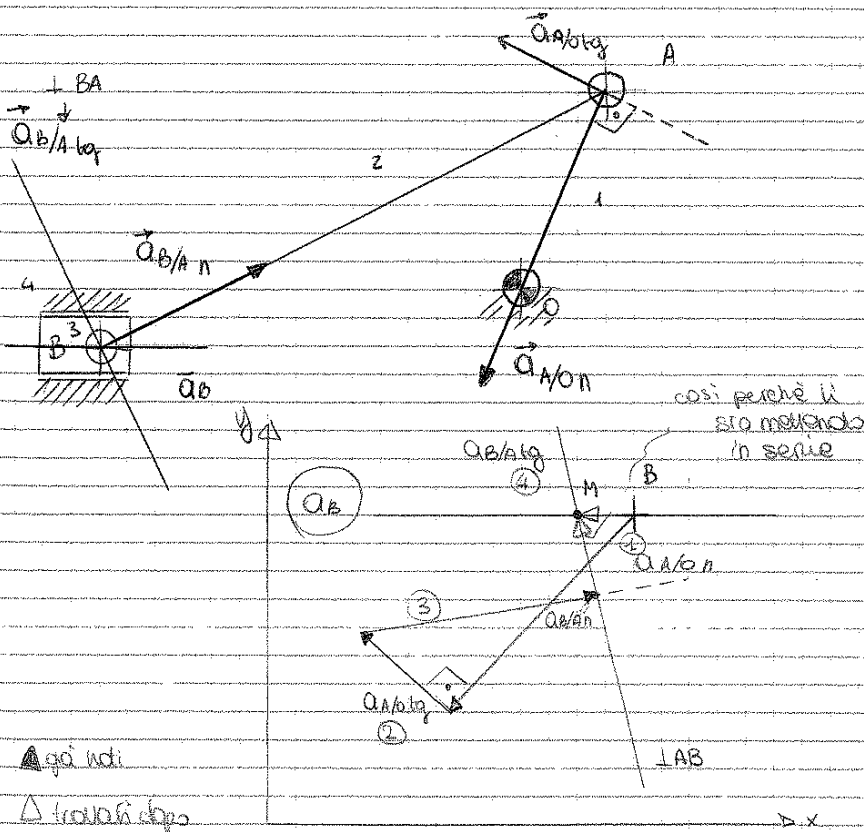 a⃗A/O tg
A
⊥ BA
a⃗B/A tg
2
1
a⃗B/A n
4
O
3
B
a⃗A/O n
a̅B
così perché li
sto mettendo
in serie
y
aB/A tg
④
M
B
aB
①
aA/O n
③
aB/A n
aA/O tg
②
⊥AB
▲ già noti
△ trovati dopo
x